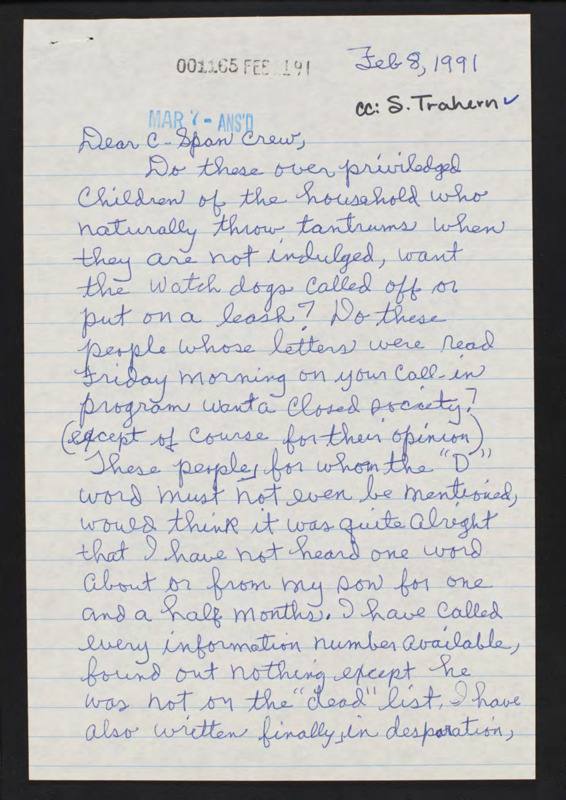 001165 FEB 191
Feb 8, 1991
cc: S. Trahern ✓
MAR 7 - ANS'D
Dear C-Span Crew,
Do these over priviledged
Children of the household who
naturally throw tantrums when
they are not indulged, want
the watch dogs called off or
put on a leash? Do these
people whose letters were read
Friday morning on your call-in
program want a closed society?
(except of course for their opinion)
These people, for whom the "D"
word must not even be mentioned,
would think it was quite alright
that I have not heard one word
about or from my son for one
and a half months. I have called
every information number available,
found out nothing except he
was not on the "dead" list. I have
also written finally, in desparation,